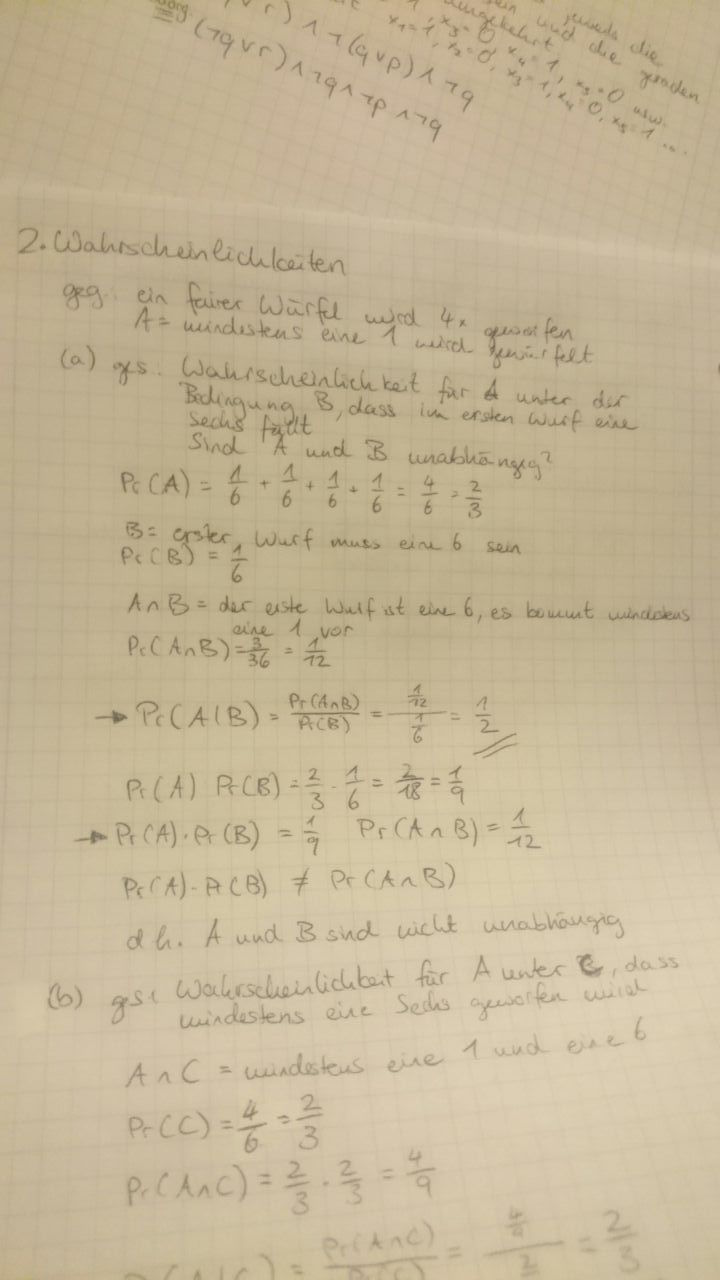 v r) ∧ ¬(q∨p) ∧ ¬q
(¬q∨r) ∧ ¬q ∧ ¬p ∧ ¬q
jeweils die
und die geraden
umgekehrt
x₃=0, x₄=1, x₅=0 usw.
x₁=1, x₂=0, x₃=1, x₄=0, x₅=1 ...
2. Wahrscheinlichkeiten
geg: ein fairer Würfel wird 4x geworfen
A = mindestens eine 1 wird gewürfelt
(a) ges: Wahrscheinlichkeit für A unter der
Bedingung B, dass im ersten Wurf eine
Sechs fällt
Sind A und B unabhängig?
Pr(A) = 1/6 + 1/6 + 1/6 + 1/6 = 4/6 = 2/3
B = erster Wurf muss eine 6 sein
Pr(B) = 1/6
A∩B = der erste Wurf ist eine 6, es kommt mindestens
eine 1 vor
Pr(A∩B) = 3/36 = 1/12
→ Pr(A|B) = Pr(A∩B)/Pr(B) = 1/12 / 1/6 = 1/2
Pr(A) Pr(B) = 2/3 · 1/6 = 2/18 = 1/9
→ Pr(A)·Pr(B) = 1/9 Pr(A∩B) = 1/12
Pr(A)·Pr(B) ≠ Pr(A∩B)
d.h. A und B sind nicht unabhängig
(b) ges: Wahrscheinlichkeit für A unter C, dass
mindestens eine Sechs geworfen wird
A∩C = mindestens eine 1 und eine 6
Pr(C) = 4/6 = 2/3
Pr(A∩C) = 2/3 · 2/3 = 4/9
Pr(A|C) = Pr(A∩C)/Pr(C) = 4/9 / 2 = 2/3